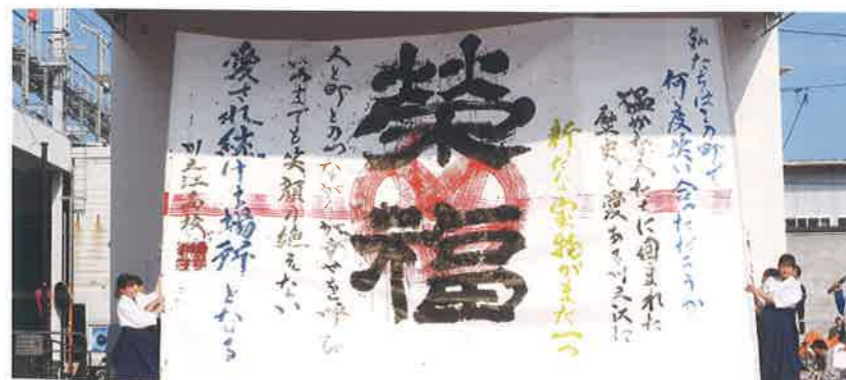 私たちはこの町で
何度笑い合っただろうか
温かな人たちに囲まれた
歴史と愛ある川之江に
新たな宝物がまた一つ
榮福
人と町とのつながりが幸せを呼び
いつまでも笑顔の絶えない
愛され続ける場所となる
川之江高校